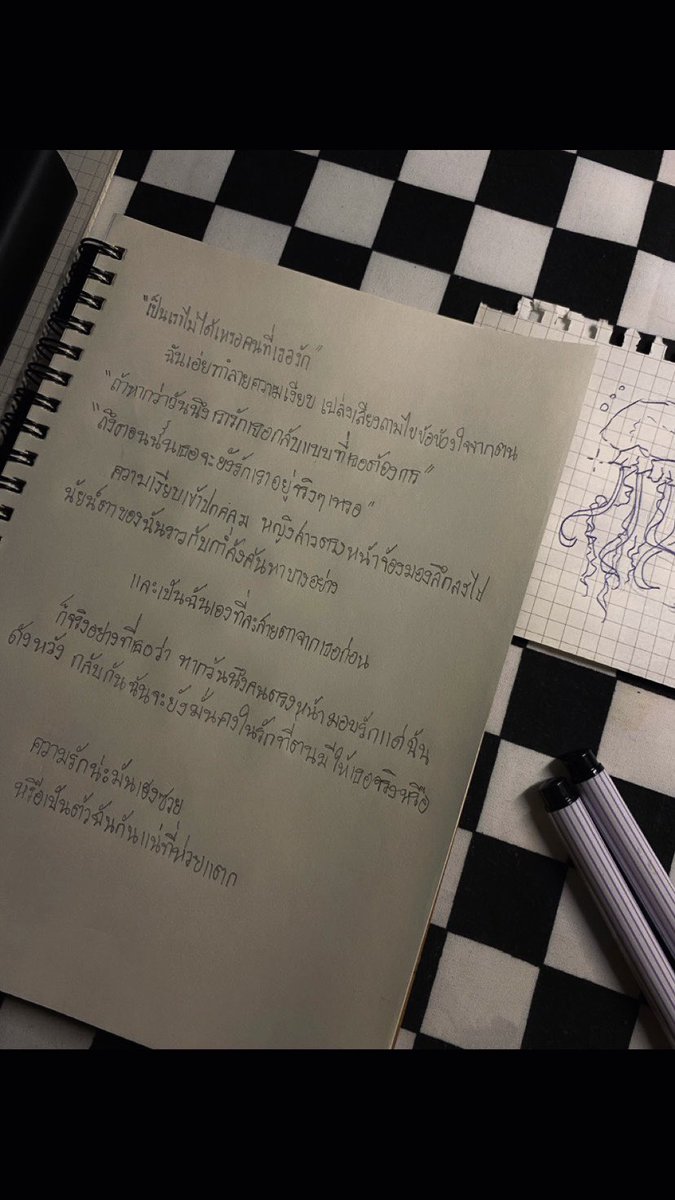 "เป็นเราไม่ได้เหรอคนที่เธอรัก"
ฉันเอ่ยทำลายความเงียบ เปล่งเสียงถามไขข้อข้องใจจากตน
"ถ้าหากว่าวันนึงเรารักเธอกลับแบบที่เธอต้องการ"
"ถึงตอนนั้นเธอจะยังรักเราอยู่จริงๆเหรอ"
ความเงียบเข้าปกคลุม หญิงสาวตรงหน้าจ้องมองลึกลงไป
นัยน์ตาของฉันราวกับกำลังค้นหาบางอย่าง
และเป็นฉันเองที่ละสายตาจากเธอก่อน
ก็จริงอย่างที่เธอว่า หากวันนึงคนตรงหน้ามอบรักแด่ฉัน
ดังหวัง กลับกันฉันจะยังมั่นคงในรักที่ตนมีให้เธอจริงหรือ
ความรักน่ะมันเฮงซวย
หรือเป็นตัวฉันกันแน่ที่ห่วยแตก